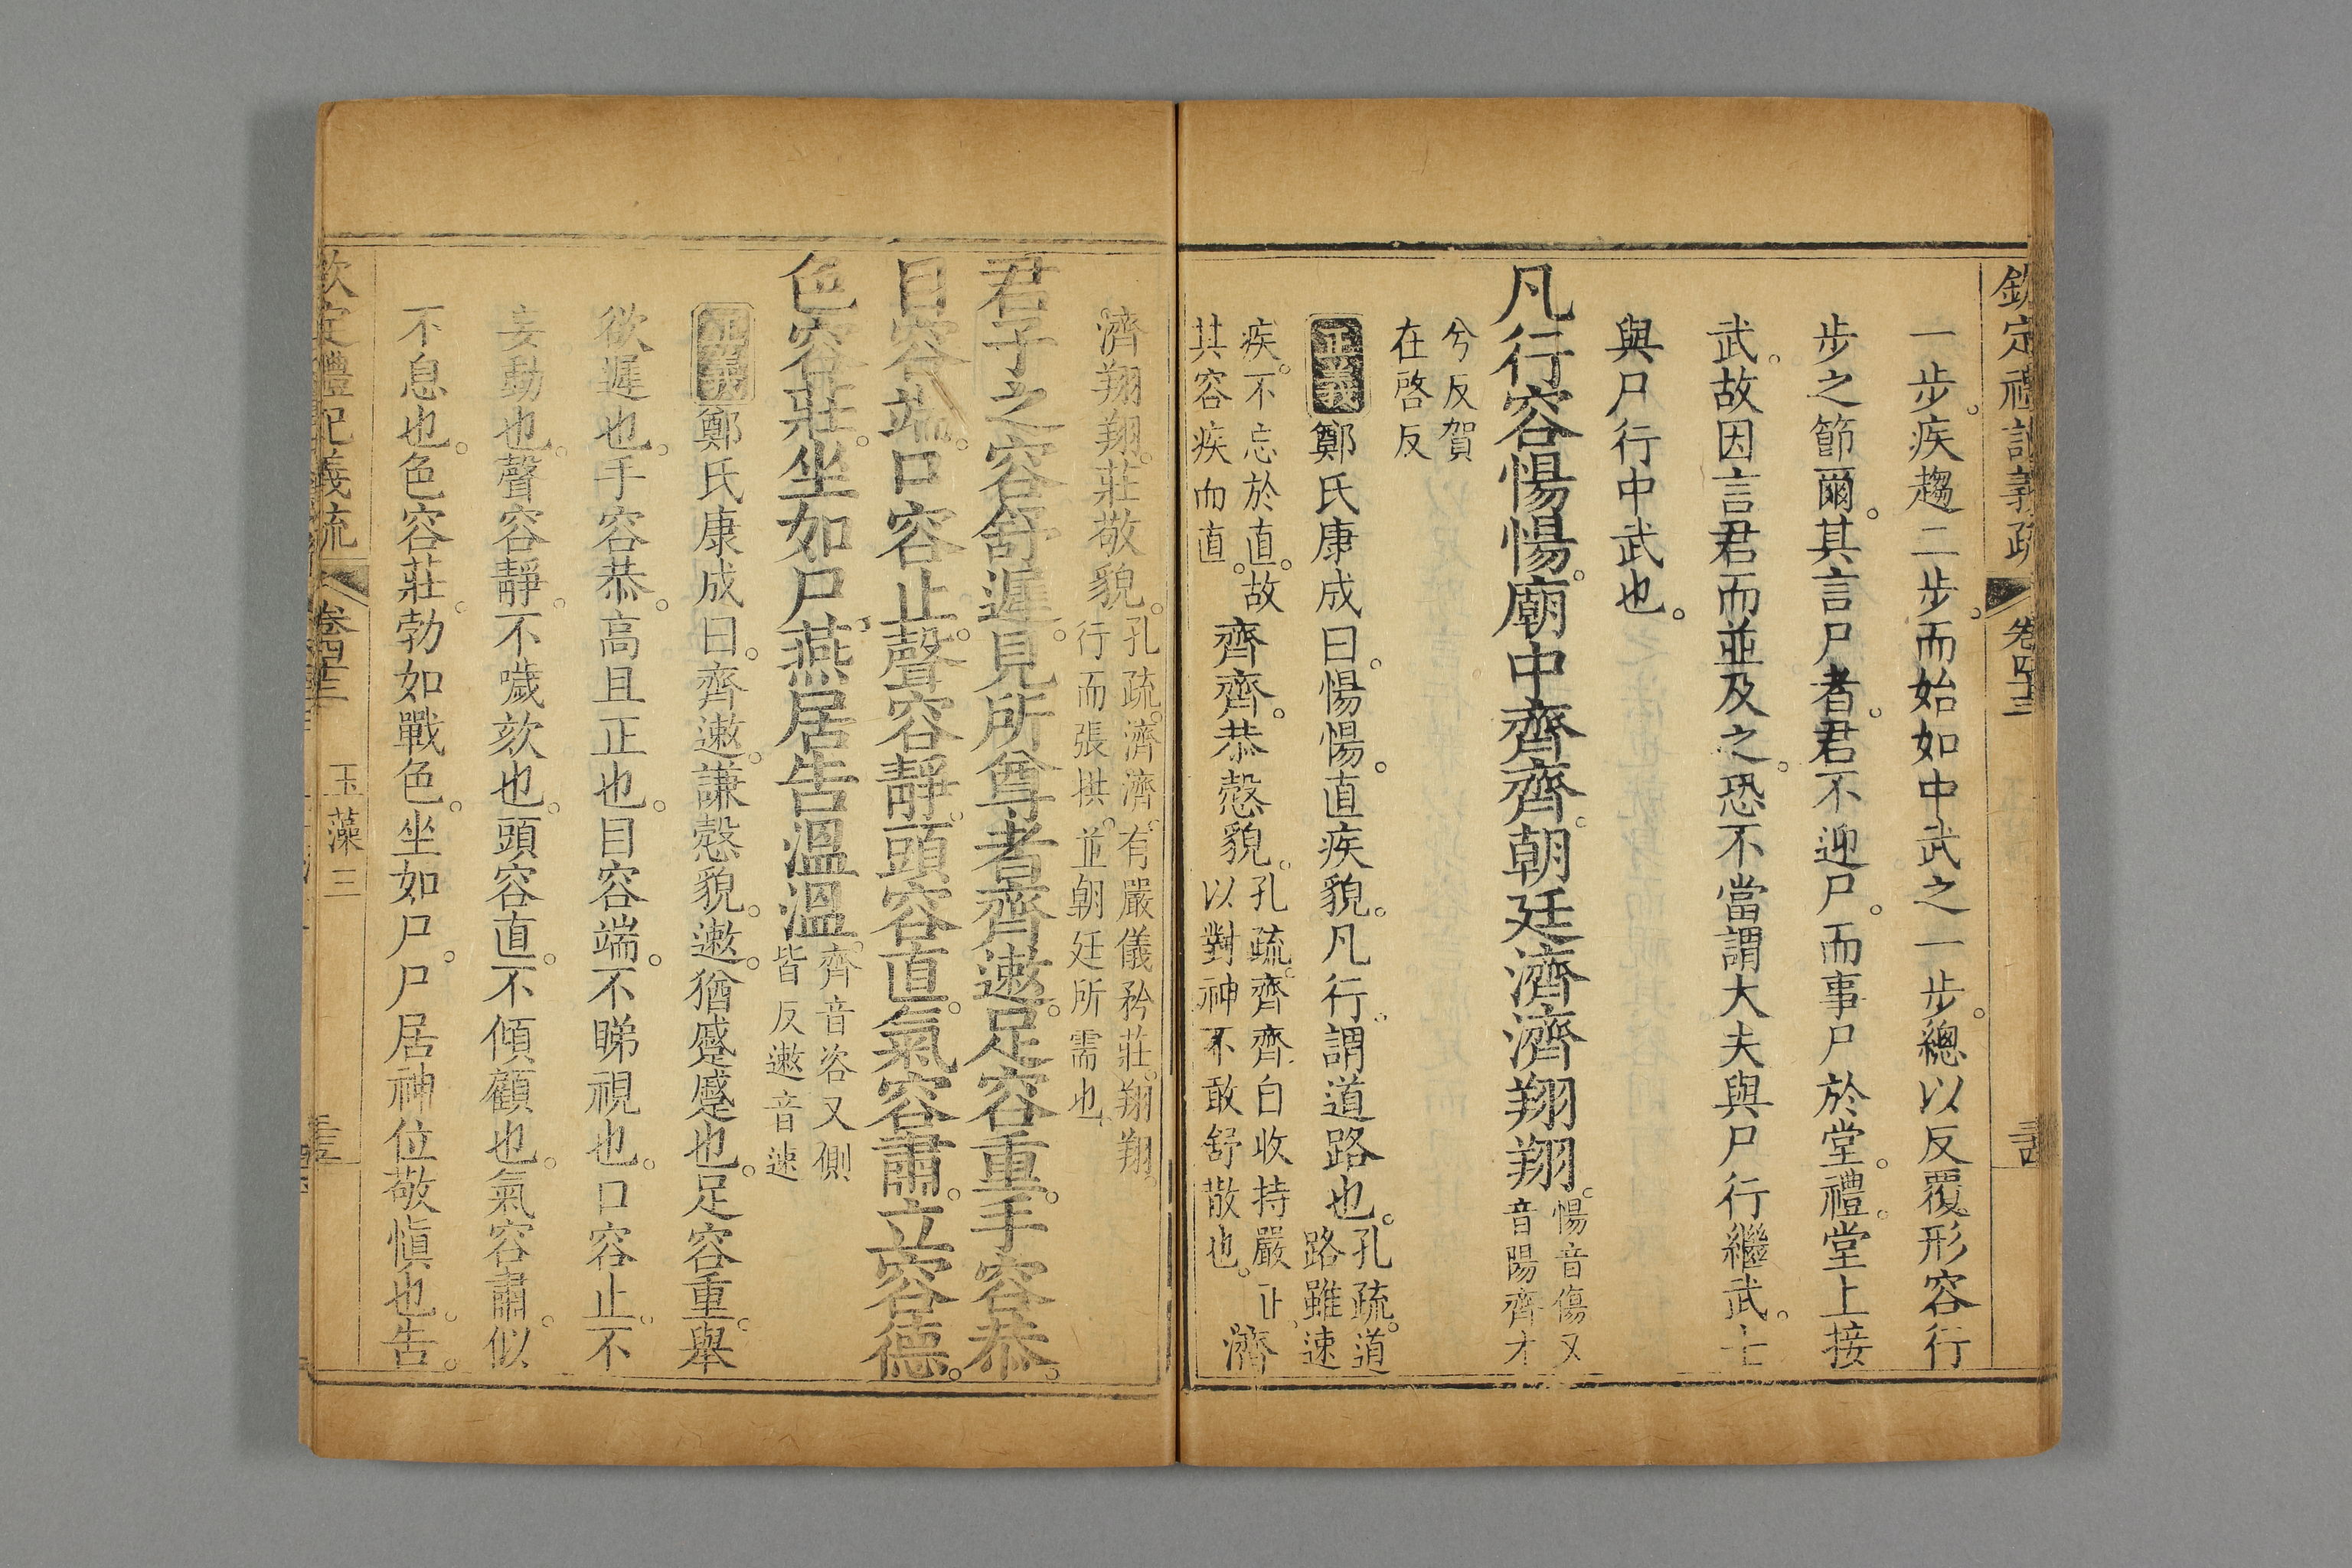 欽定禮記義疏 卷四十三
一步。疾趨二步。而始如中武之一步。總以反覆形容行
步之節爾。其言尸者。君不迎尸。而事尸於堂。禮。堂上接
武。故因言君而並及之。恐不當謂大夫與尸行繼武。士
與尸行中武也。
凡行容愓愓。廟中齊齊。朝廷濟濟翔翔。愓音傷又
音陽齊才
兮反賀
在啓反
正義鄭氏康成曰。愓愓。直疾貌。凡行。謂道路也。孔疏。道
路雖速
疾。不忘於直。故
其容疾而直。
齊齊。恭慤貌。孔疏。齊齊自收持嚴正、
以對神不敢舒散也。
濟
濟翔翔。莊敬貌。孔疏。濟濟。有嚴儀矜莊。翔翔。
行而張拱。並朝廷所需也、
君子之容舒遲。見所尊者齊遬。足容重。手容恭。
目容端。口容止。聲容靜。頭容直。氣容肅。立容德。
色容莊。坐如尸、燕居告溫溫。齊音咨又側
皆反遬音速
正義鄭氏康成曰。齊遬。謙慤貌。遬。猶蹙蹙也。足容重。舉
欲遲也。手容恭。高且正也。目容端。不睇視也。口容止。不
妄動也。聲容靜。不噦欬也。頭容直。不傾顧也。氣容肅。似
不息也。色容莊。勃如戰色。坐如尸。尸居神位敬愼也。告。
欽定禮記義疏 卷四十三 玉藻三